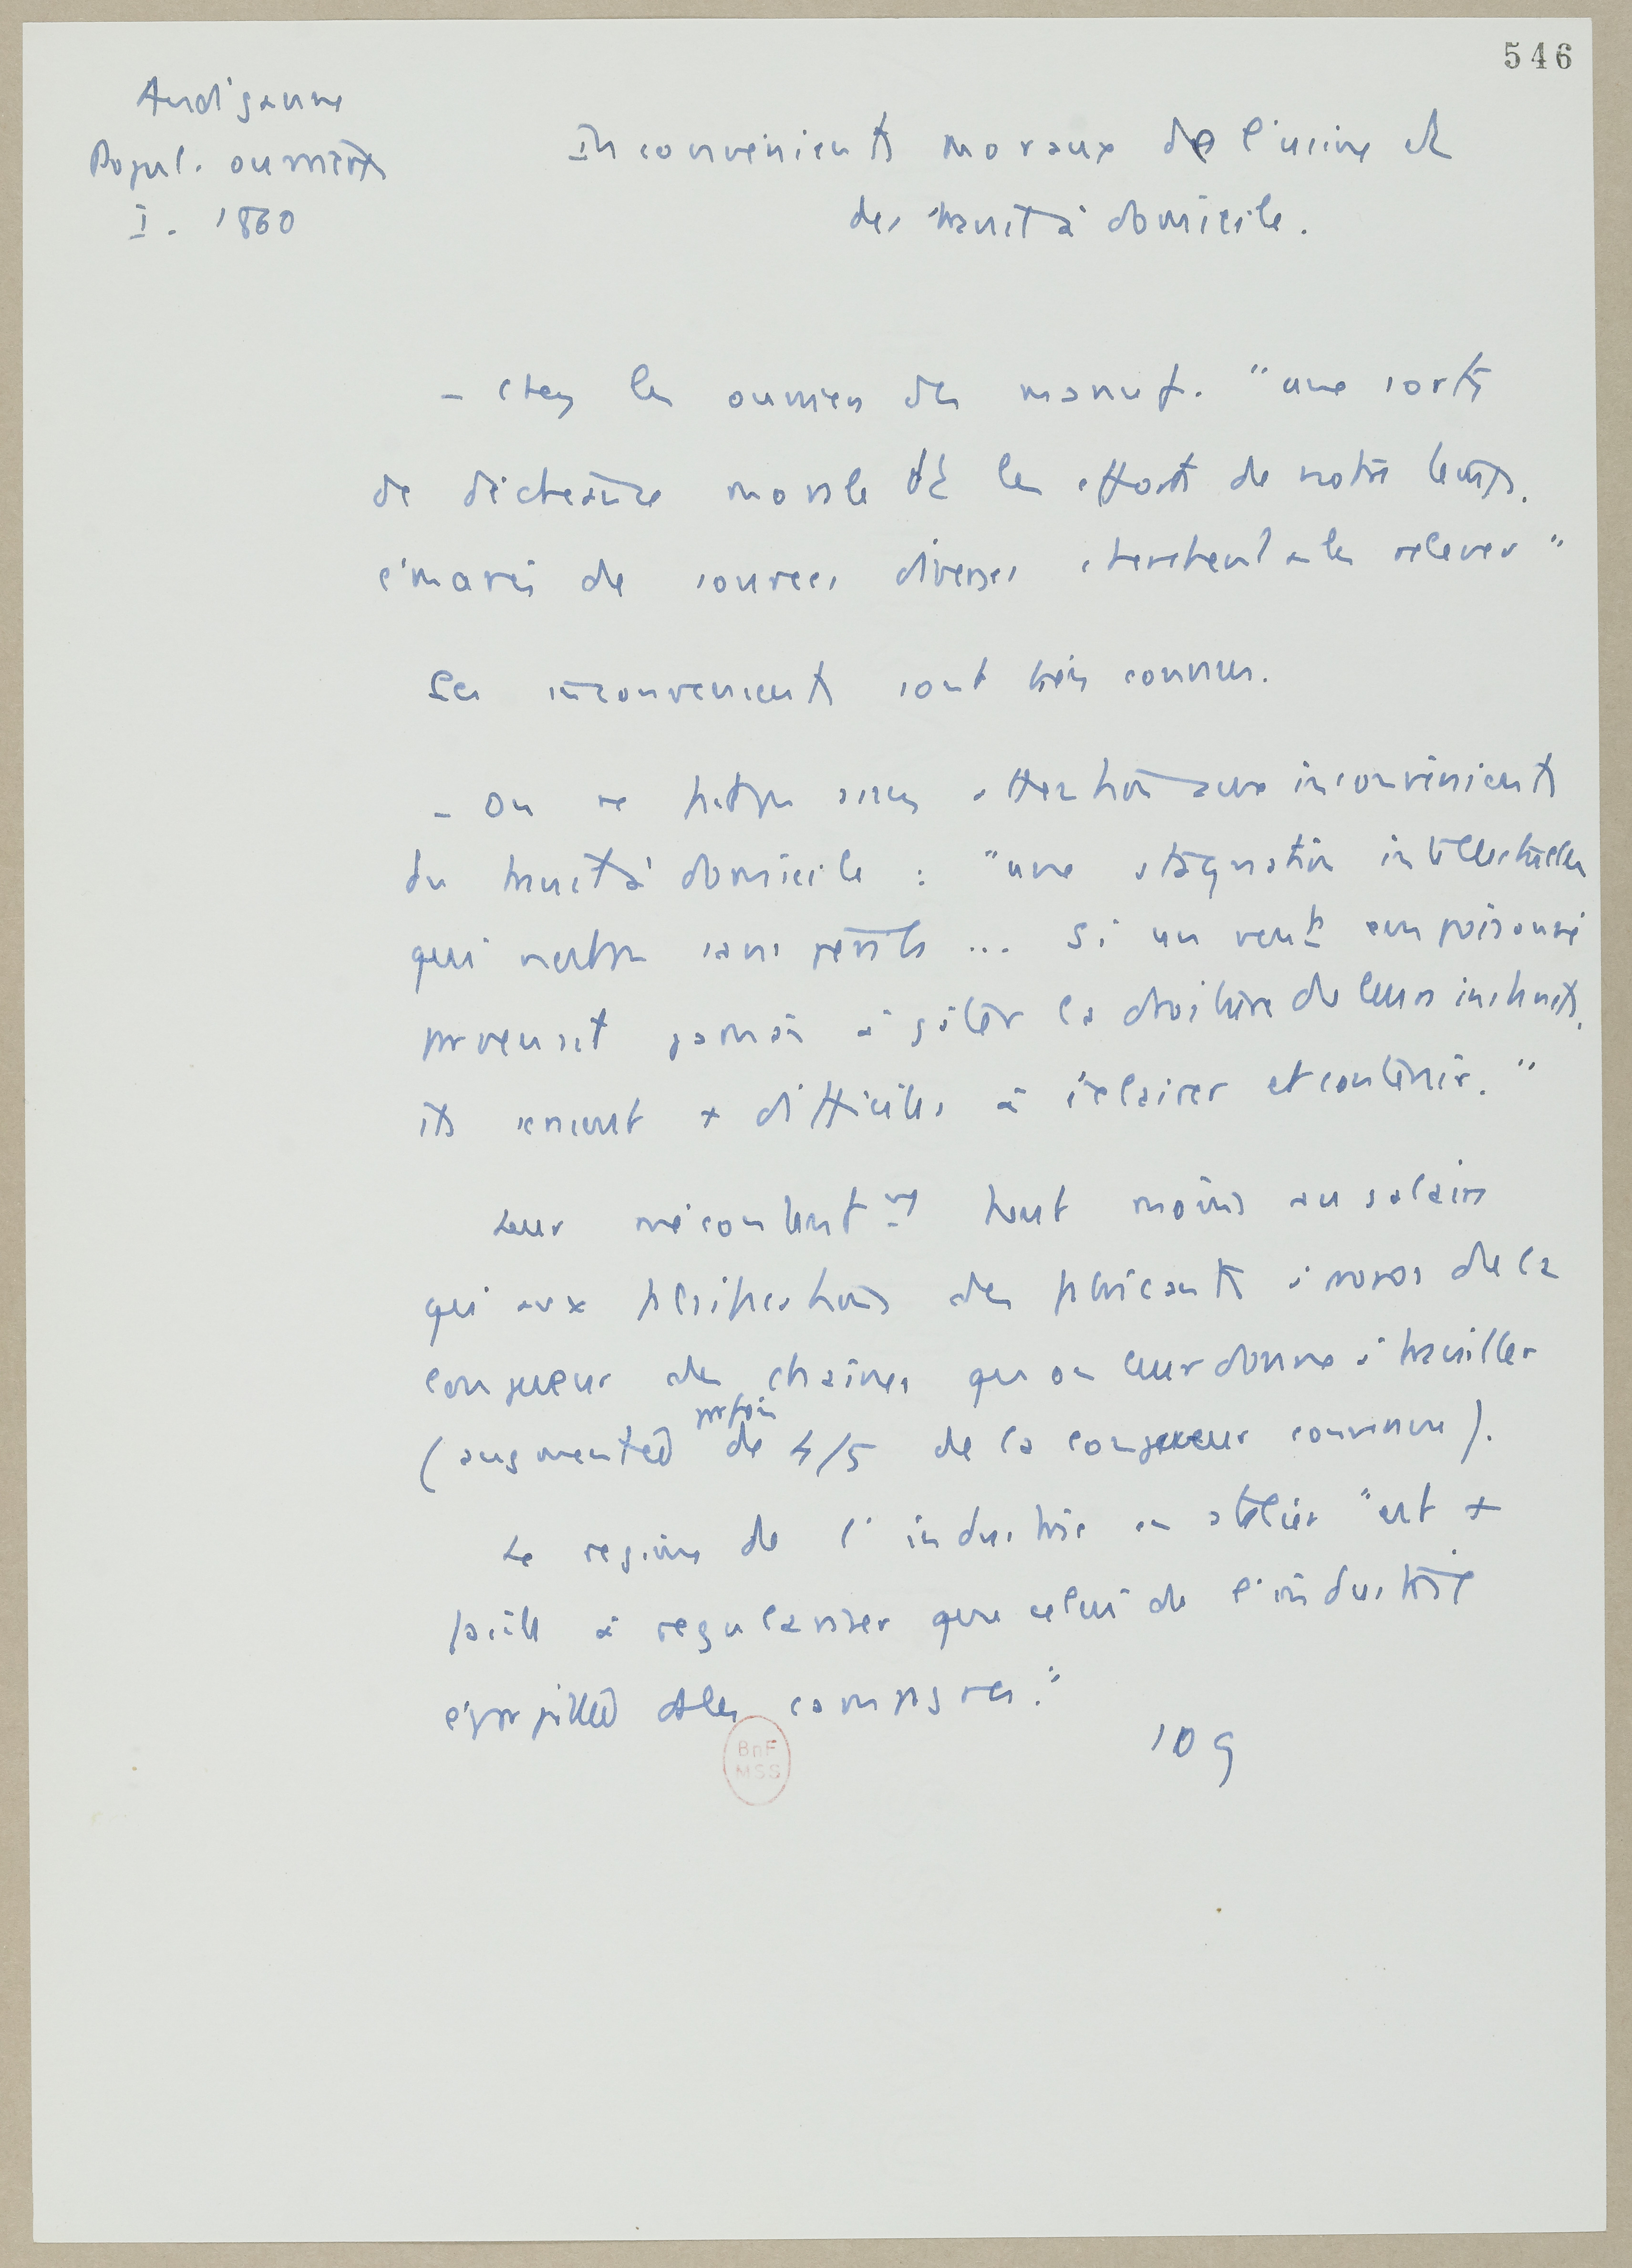 546
Audiganne
Popul. ouvrières
I. 1860
Inconvénients moraux de l'usine et
des travit à domicile.
- Chez les ouvriers des manuf. "une sorte
de déchéance morale dt les efforts de notre temps,
émanés de sources diverses cherchent à les relever"
Ces inconvenients sont bien connus.
- On ne prête pas assez attention aux inconvénients
du travit à domicile : "une stagnation intellectuelle
qui n'est pas sans périls ... Si un vent empoisonné
parvenait jamais à gâter la droiture de leurs instincts,
ils seraient + difficiles à éclairer et contenir."
Leur mécontentmt tient moins au salaire
qu'aux des fabricants à propos de la
longueur des chaînes qu'on leur donne à travailler
(augmentée parfois de 4/5 de la longueur convenue).
Le regime de l'industrie en atelier "est +
facile à regulariser que celui de l'industrie
éparpillée ds les campagnes."
109
BnF
MSS